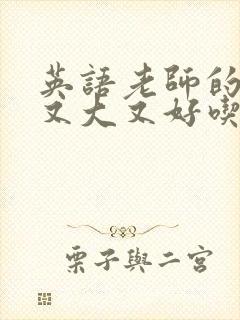 英語老師的
又大又好喫
栗子與二宮